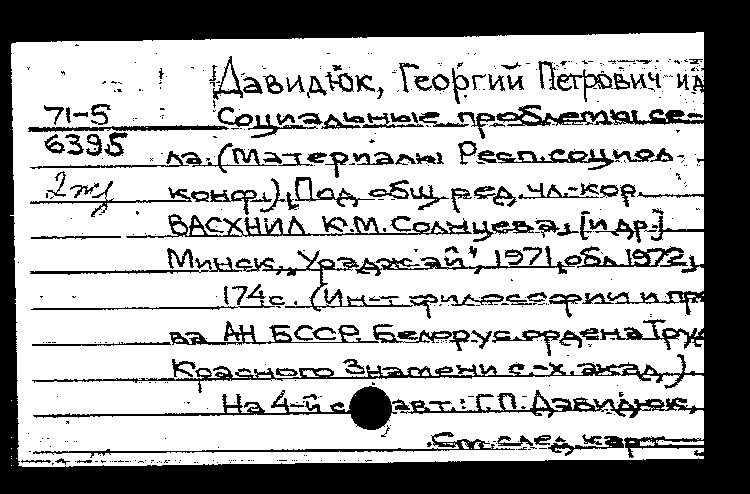 Давидюк, Георгий Петрович и д
71-5 Социальные проблемы се-
6395 ла. (Материалы Респ. социол.
2 жу конф.). Под общ. ред. чл.-кор.
ВАСХНИЛ К.М. Солнцева, [и др.]
Минск, „Ураджай", 1971, обл. 1972,
174 с. (Ин-т философии и пра
ва АН БССР. Белорус. ордена Труд
Красного Знамени с.-х. акад.).
На 4-й с авт.: Г.П. Давидюк,
См. след. карт